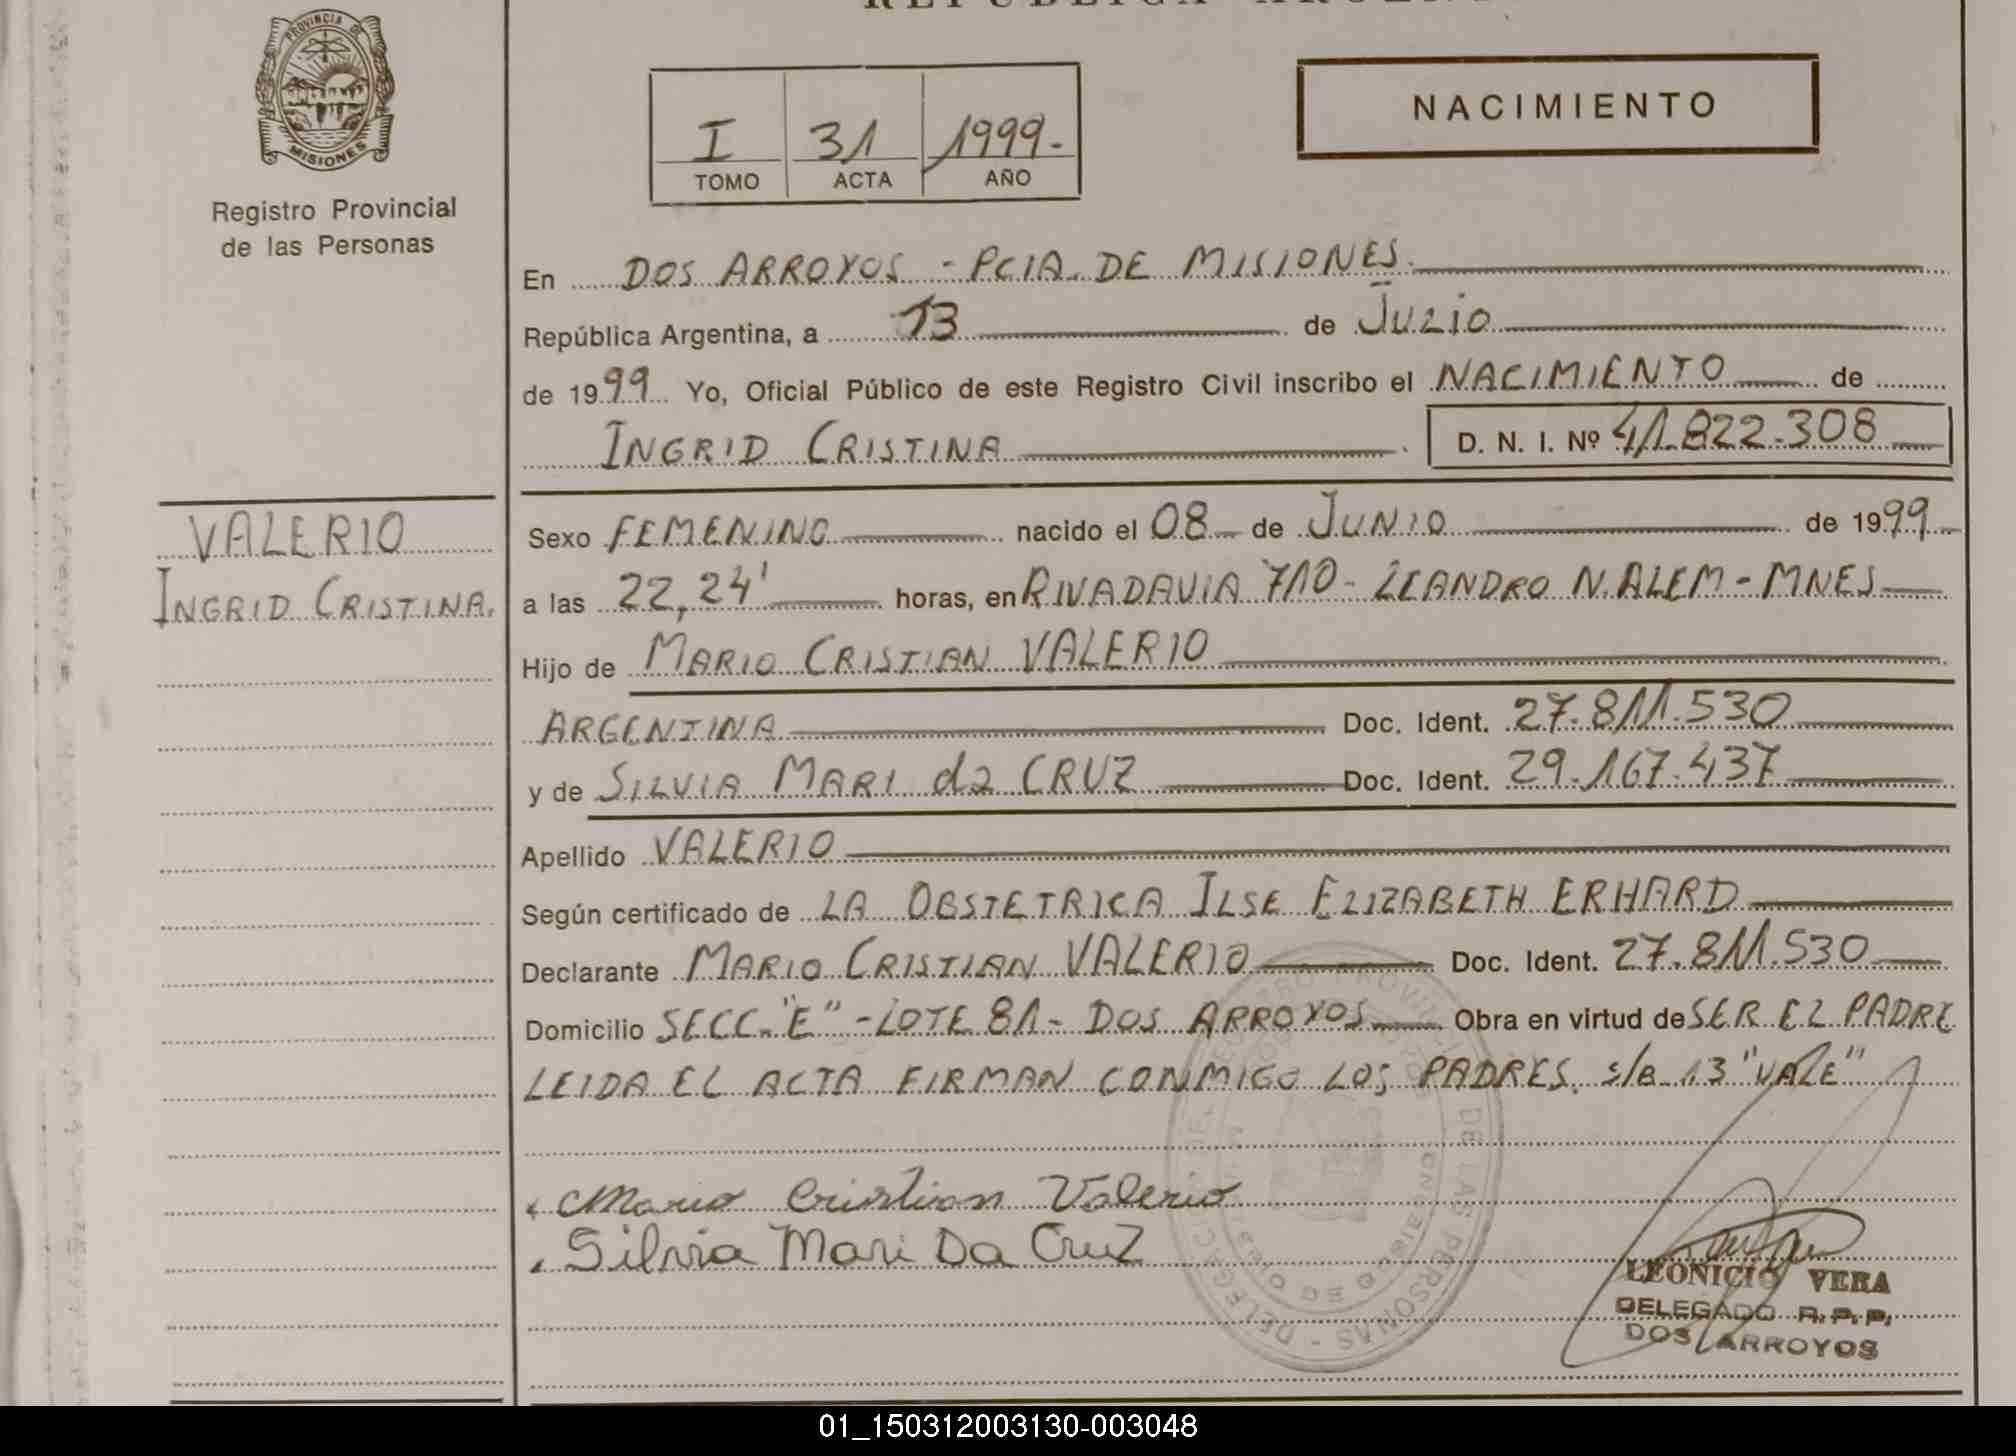 REPUBLICA
PROVINCIA DE
MISIONES
Registro Provincial
de las Personas
I 31 1999-
TOMO ACTA AÑO
NACIMIENTO
En DOS ARROYOS - PCIA. DE MISIONES.
República Argentina, a 13 de JULIO
de 1999 Yo, Oficial Público de este Registro Civil inscribo el NACIMIENTO de
INGRID CRISTINA D. N. I. Nº 41.822.308
VALERIO
INGRID CRISTINA.
Sexo FEMENINO nacido el 08 de JUNIO de 1999
a las 22,24' horas, en RIVADAVIA 710 - LEANDRO N. ALEM - MNES
Hijo de MARIO CRISTIAN VALERIO
ARGENTINA Doc. Ident. 27.811.530
y de SILVIA MARI da CRUZ Doc. Ident. 29.167.437
Apellido VALERIO
Según certificado de LA OBSTETRICA ILSE ELIZABETH ERHARD
Declarante MARIO CRISTIAN VALERIO Doc. Ident. 27.811.530
Domicilio SECC. "E" - LOTE 81 - DOS ARROYOS Obra en virtud de SER EL PADRE
LEIDA EL ACTA FIRMAN CONMIGO LOS PADRES. s/B 13 "VALE"
Mario Cristian Valerio
Silvia Mari Da Cruz
DE LAS PERSONAS
LEONICIO VERA
DELEGADO R.P.P.
DOS ARROYOS
01_150312003130-003048